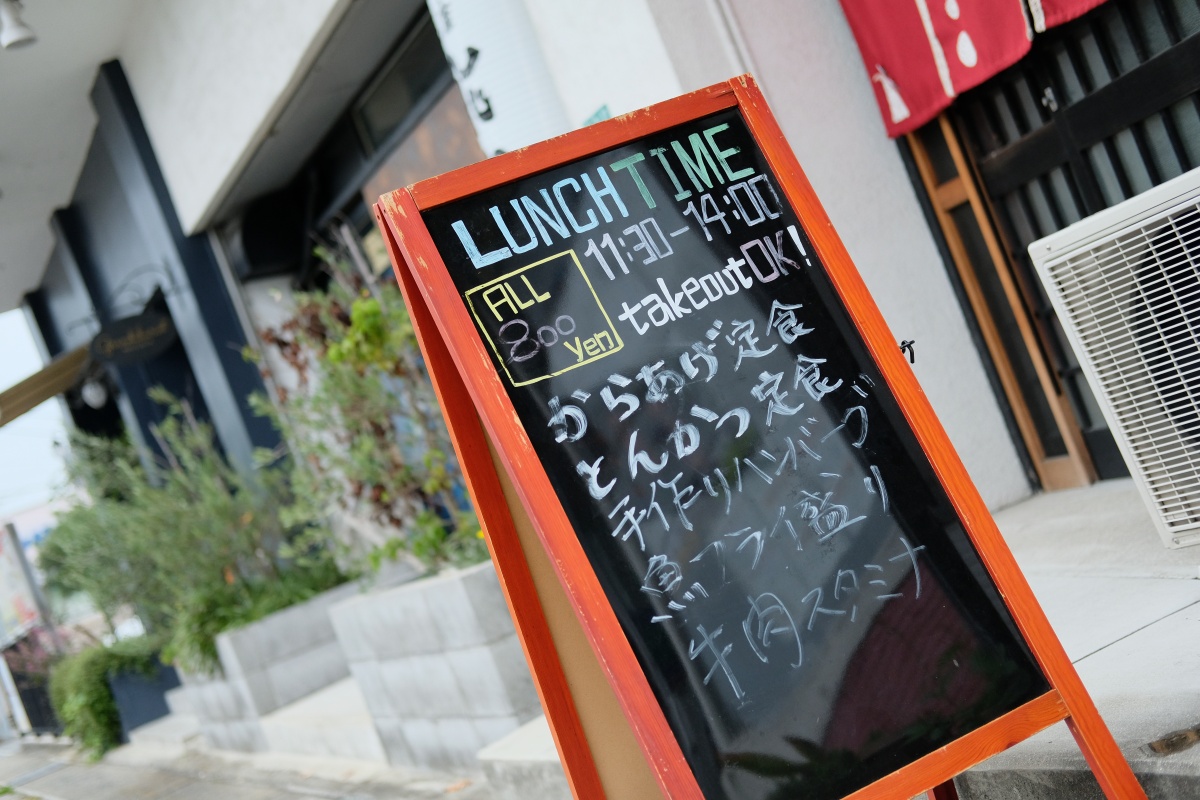 LUNCH TIME
11:30-14:00
ALL
800
yen
takeout OK!
からあげ定食
とんかつ定食
手作りハンバーグ
魚フライ盛り
牛肉スタミナ